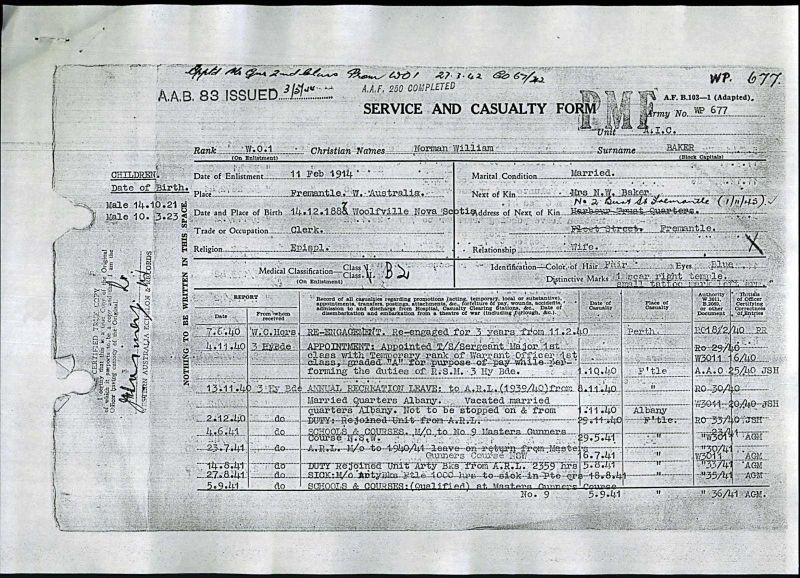 Appt'd Mr Gnr 2nd Class From WO1 27.3.42 RO 67/42
WP. 677.
A.A.B. 83 ISSUED 3/5/44
A.A.F. 250 COMPLETED
SERVICE AND CASUALTY FORM
PMF
A.F. B.103—1 (Adapted).
Army No. WP 677
Unit A.I.C.
Rank W.O.1 Christian Names Norman William Surname BAKER
(On Enlistment) (Block Capitals)
CHILDREN.
Date of Birth.
Male 14.10.21
Male 10. 3.23
NOTHING TO BE WRITTEN IN THIS SPACE
CERTIFIED TRUE COPY
WESTERN AUSTRALIA ECHELON & RECORDS
Date of Enlistment 11 Feb 1914
Place Fremantle. W. Australia.
Date and Place of Birth 14.12.1887 Woolfville Nova Scotia
Trade or Occupation Clerk.
Religion Epispl.
Marital Condition Married.
Next of Kin Mrs N.W. Baker
No 2 Burt St Fremantle (1/11/45)
Address of Next of Kin Harbour Trust Quarters.
Fleet Street. Fremantle.
Relationship Wife.
X
Medical Classification Class Class B2
(On Enlistment)
Identification—Color of Hair Fair Eyes Blue
Distinctive Marks 1 near right temple.
small tattoo mark left arm.
REPORT
Date From whom received
Record of all casualties regarding promotions (acting, temporary, local or substantive), appointments, transfers, postings, attachments, &c., forfeiture of pay, wounds, accidents, admission to and discharge from Hospital, Casualty Clearing Stations, &c. Date of disembarkation and embarkation from a theatre of war (including furlough, &c.).
Date of Casualty
Place of Casualty
Authority W.3011, B.2069, or other Document
Initials of Officer Certifying Correctness of Entries
7.6.40 W.C.Hqrs. RE-ENGAGEMENT. Re-engaged for 3 years from 11.2.40 Perth. RO18/2/40 PR
4.11.40 3 HyBde APPOINTMENT: Appointed T/S/Sergeant Major 1st Ro 29/40
class with Temporery rank of Warrant Officer 1st W3011 16/40
class, graded "A" for purpose of pay while per-
forming the duties of R.S.M. 3 Hy Bde. 1.10.40 F'tle A.A.O 25/40 JSH
13.11.40 3 Hy Bde ANNUAL RECREATION LEAVE: to A.R.L.(1939/40)from 8.11.40 " RO 30/40
Married Quarters Albany. Vacated married W3011 20/40 JSH
quarters Albany. Not to be stopped on & from 1.11.40 Albany
2.12.40 do DUTY: Rejoined Unit from A.R.L. 29.11.40 F'tle. RO 33/40 JSH
4.6.41 do SCHOOLS & COURSES. M/O to No 9 Masters Gunners 23/41
Course N.S.W. 29.5.41 " "W3011 AGM
23.7.41 do A.R.L. M/o to 1940/41 leave on return from Masters "30/41
Gunners Course NSW 16.7.41 " W3011 AGM
14.8.41 do DUTY Rejoined Unit Arty Bks from A.R.L. 2359 hrs 5.8.41 " "33/41 AGM
27.8.41 do SICK:M/o ArtyBks Ftle 1000 hrs to sick in Pte qrs 18.8.41 " "35/41 AGM
5.9.41 do SCHOOLS & COURSES:(Qualified) at Masters Gunners Course
No. 9 5.9.41 " " 36/41 AGM.